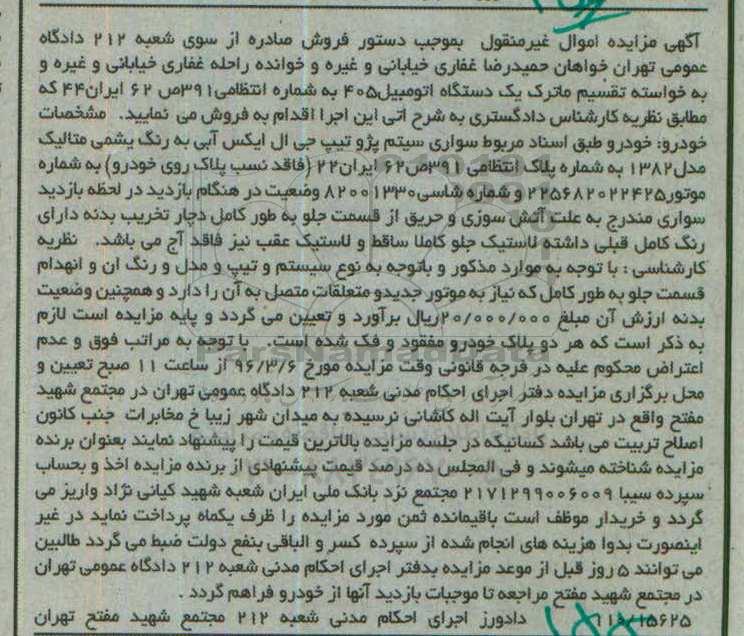 آگهی مزایده اموال غیرمنقول بموجب دستور فروش صادره از سوی شعبه ۲۱۲ دادگاه
عمومی تهران خواهان حمیدرضا غفاری خیابانی و غیره و خوانده راحله غفاری خیابانی و غیره و
به خواسته تقسیم ماترک یک دستگاه اتومبیل۴۰۵ به شماره انتظامی۳۹۱ص ۶۲ ایران۴۴ که
مطابق نظریه کارشناس دادگستری به شرح اتی این اجرا اقدام به فروش می نمایید. مشخصات
خودرو: خودرو طبق اسناد مربوط سواری سیتم پژو تیپ جی ال ایکس آبی به رنگ یشمی متالیک
مدل۱۳۸۲ به شماره پلاک انتظامی ۳۹۱ص۶۲ ایران۲۲ (فاقد نسب پلاک روی خودرو) به شماره
موتور۲۲۵۶۸۲۰۲۲۴۲۵ و شماره شاسی۸۲۰۰۱۳۳۰ وضعیت در هنگام بازدید در لحظه بازدید
سواری مندرج به علت آتش سوزی و حریق از قسمت جلو به طور کامل دچار تخریب بدنه دارای
رنگ کامل قبلی داشته لاستیک جلو کاملا ساقط و لاستیک عقب نیز فاقد آج می باشد. نظریه
کارشناسی : با توجه به موارد مذکور و باتوجه به نوع سیستم و تیپ و مدل و رنگ ان و انهدام
قسمت جلو به طور کامل که نیاز به موتور جدیدو متعلقات متصل به آن را دارد و همچنین وضعیت
بدنه ارزش آن مبلغ ۲۰/۰۰۰/۰۰۰ریال برآورد و تعیین می گردد و پایه مزایده است لازم
به ذکر است که هر دو پلاک خودرو مفقود و فک شده است. با توجه به مراتب فوق و عدم
اعتراض محکوم علیه در فرجه قانونی وقت مزایده مورخ ۹۶/۳/۶ از ساعت ۱۱ صبح تعیین و
محل برگزاری مزایده دفتر اجرای احکام مدنی شعبه ۲۱۲ دادگاه عمومی تهران در مجتمع شهید
مفتح واقع در تهران بلوار آیت اله کاشانی نرسیده به میدان شهر زیبا خ مخابرات جنب کانون
اصلاح تربیت می باشد کسانیکه در جلسه مزایده بالاترین قیمت را پیشنهاد نمایند بعنوان برنده
مزایده شناخته میشوند و فی المجلس ده درصد قیمت پیشنهادی از برنده مزایده اخذ و بحساب
سپرده سیبا ۲۱۷۱۲۹۹۰۰۶۰۰۹ مجتمع نزد بانک ملی ایران شعبه شهید کیانی نژاد واریز می
گردد و خریدار موظف است باقیمانده ثمن مورد مزایده را ظرف یکماه پرداخت نماید در غیر
اینصورت بدوا هزینه های انجام شده از سپرده کسر و الباقی بنفع دولت ضبط می گردد طالبین
می توانند ۵ روز قبل از موعد مزایده بدفتر اجرای احکام مدنی شعبه ۲۱۲ دادگاه عمومی تهران
در مجتمع شهید مفتح مراجعه تا موجبات بازدید آنها از خودرو فراهم گردد .
دادورز اجرای احکام مدنی شعبه ۲۱۲ مجتمع شهید مفتح تهران
ParsNamadData